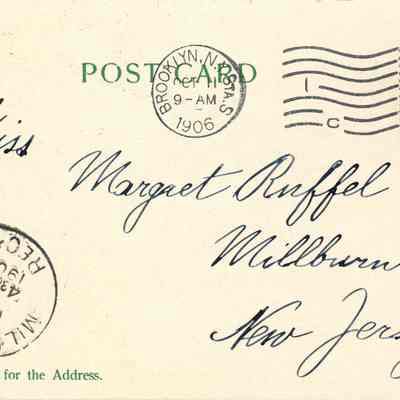 POST CARD
BROOKLYN, N.Y. STA. S
OCT 11
9-AM
1906
1
C
Miss
Margret Ruffel
Millburn
New Jers
REC'
190
430
MILL
for the Address.